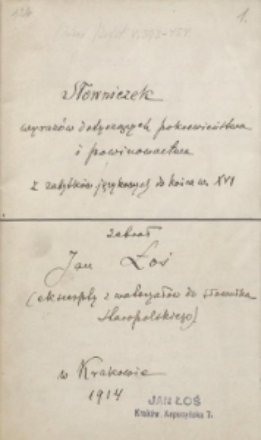 1.
Słowniczek
wyrazów dotyczących pokrewieństwa
i powinowactwa
z zabytków językowych do końca w. XVI
zebrał
Jan Łoś
(ekscerpty z materyałów do słownika
staropolskiego)
w Krakowie
1914
JAN ŁOŚ
Kraków, Kapucyńska 7.